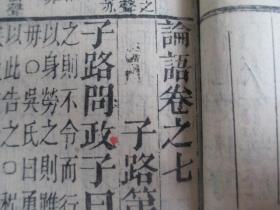 論語卷之七
子路第
子路問政子曰
之則不令而行
以身勞之則雖
毋○吳氏曰勇
以此告之○程